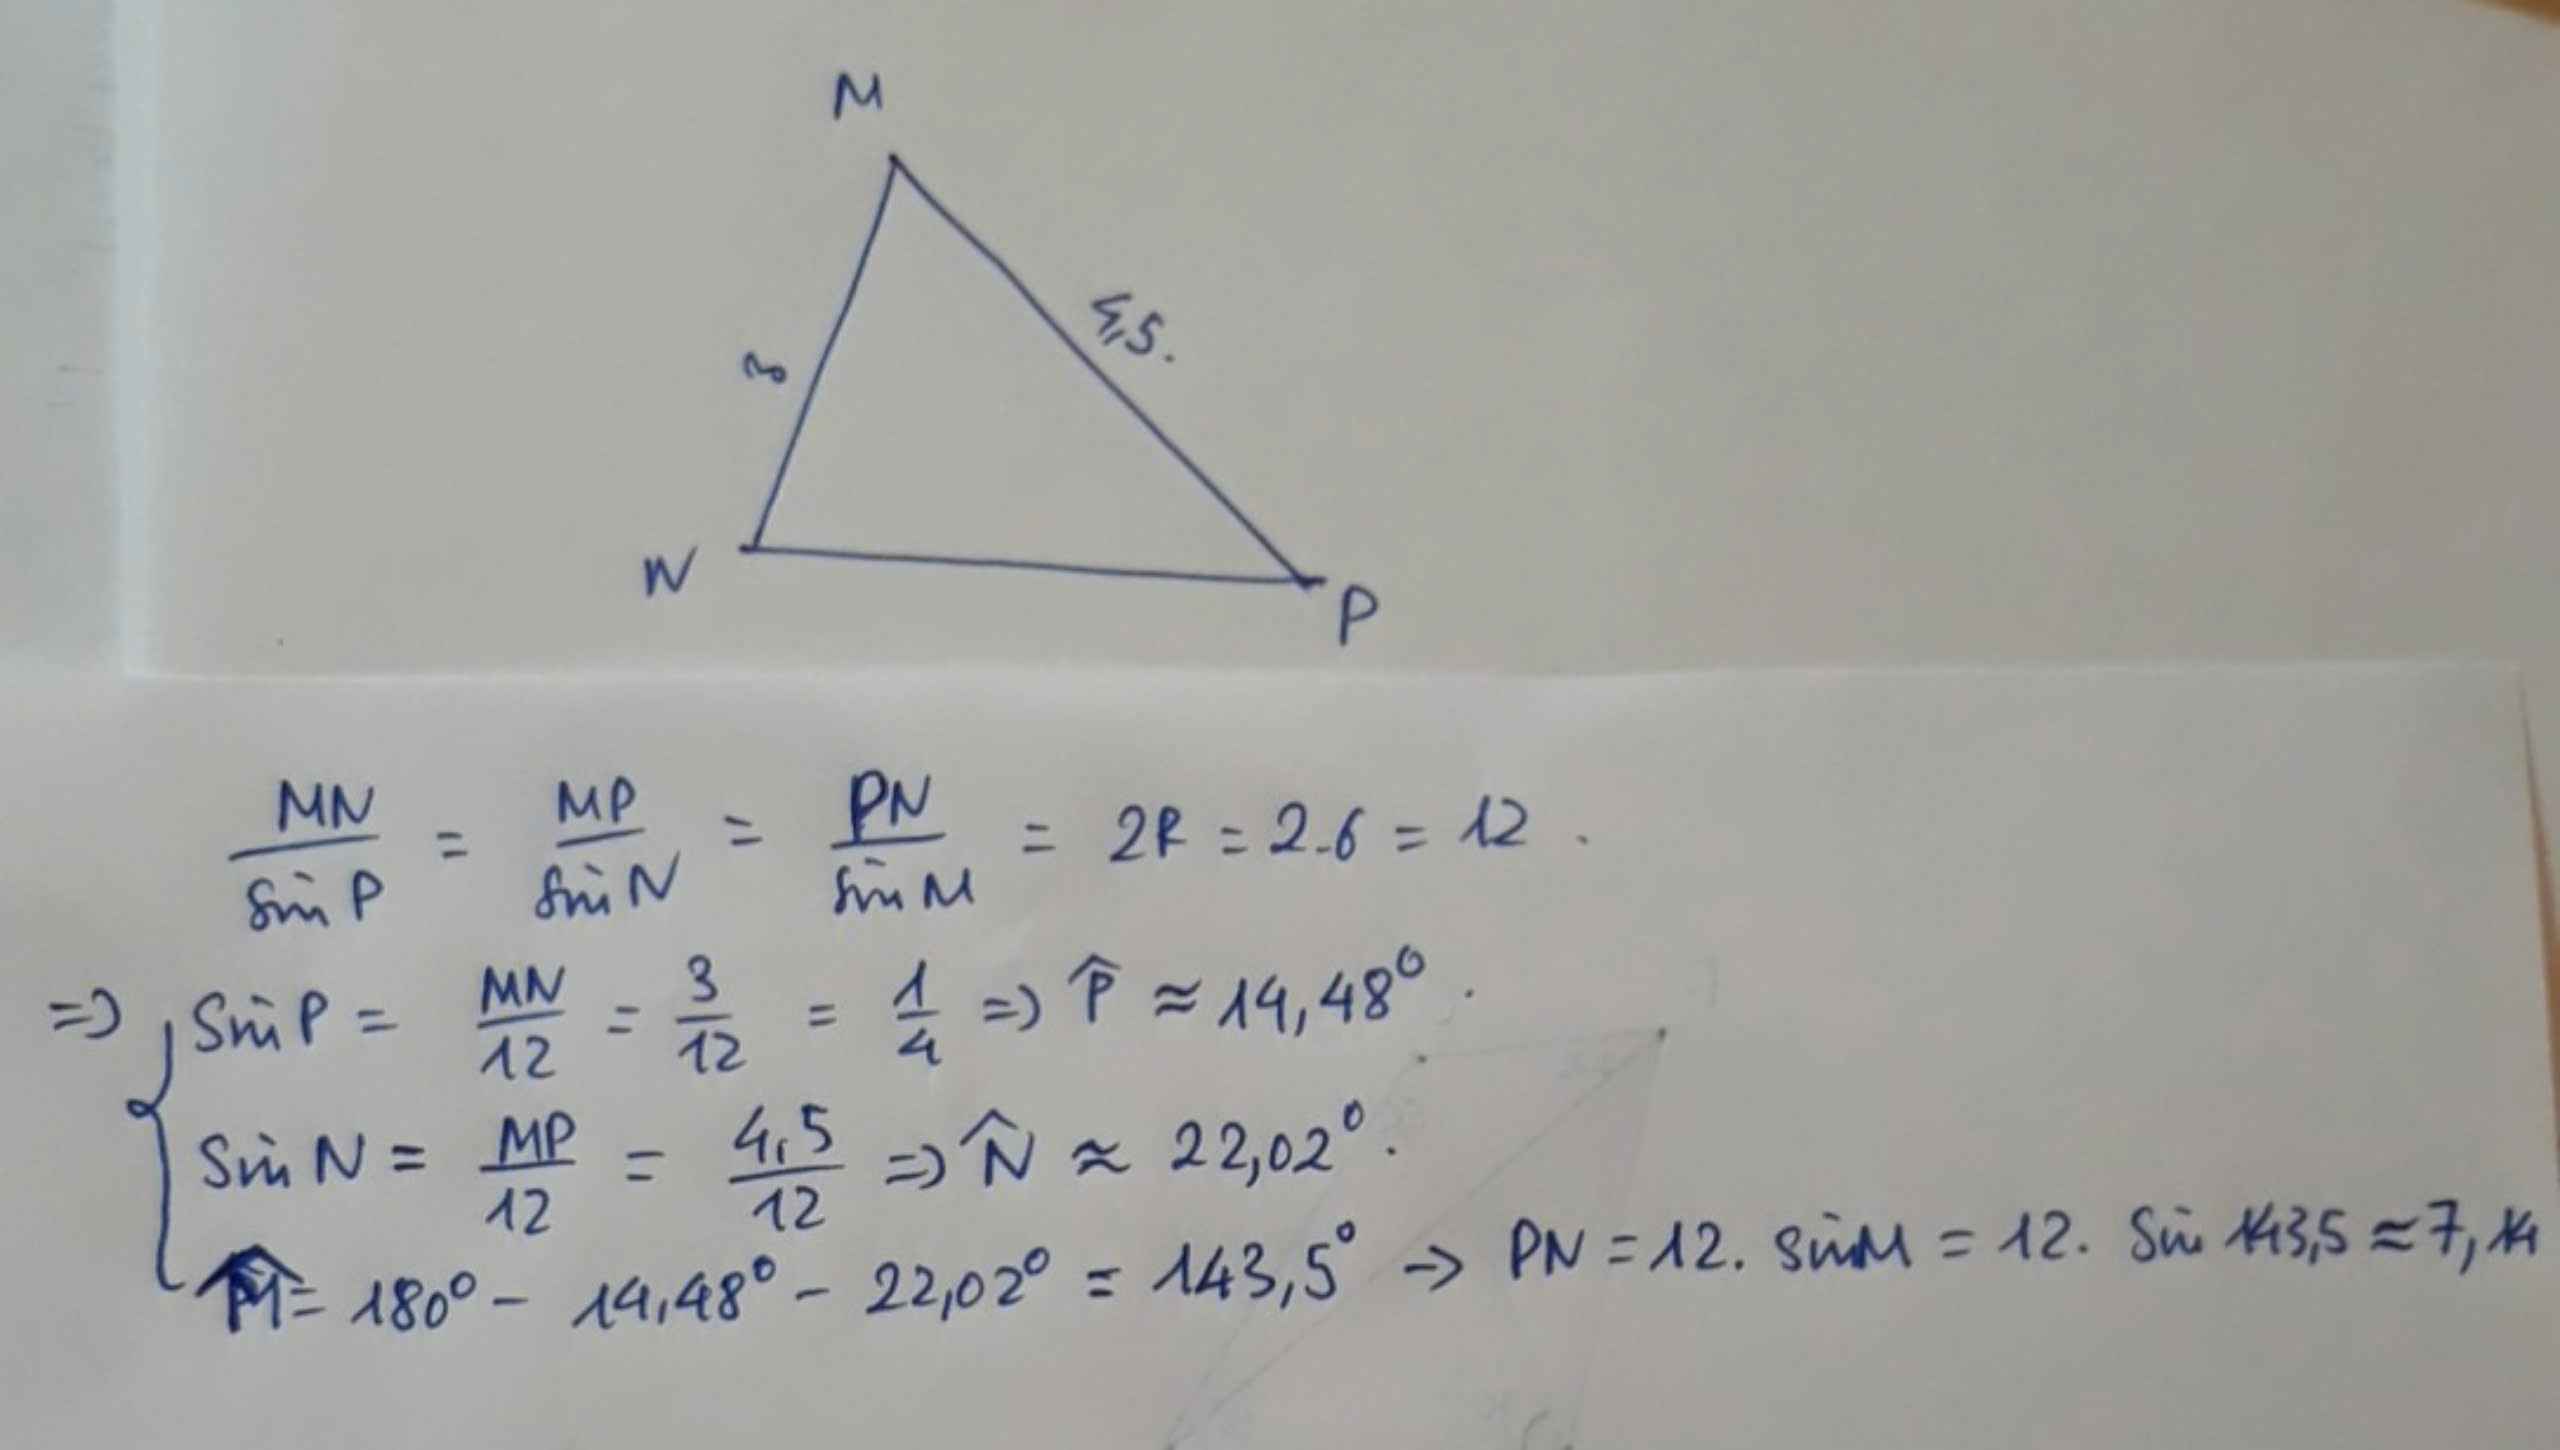 M
4,5.
3
N
P
MN/sin P = MP/sin N = PN/sin M = 2R = 2.6 = 12.
=> { sin P = MN/12 = 3/12 = 1/4 => P̂ ≈ 14,48⁰.
sin N = MP/12 = 4,5/12 => N̂ ≈ 22,02⁰.
M̂ = 180⁰ - 14,48⁰ - 22,02⁰ = 143,5⁰ → PN = 12. sin M = 12. sin 143,5 ≈ 7,14